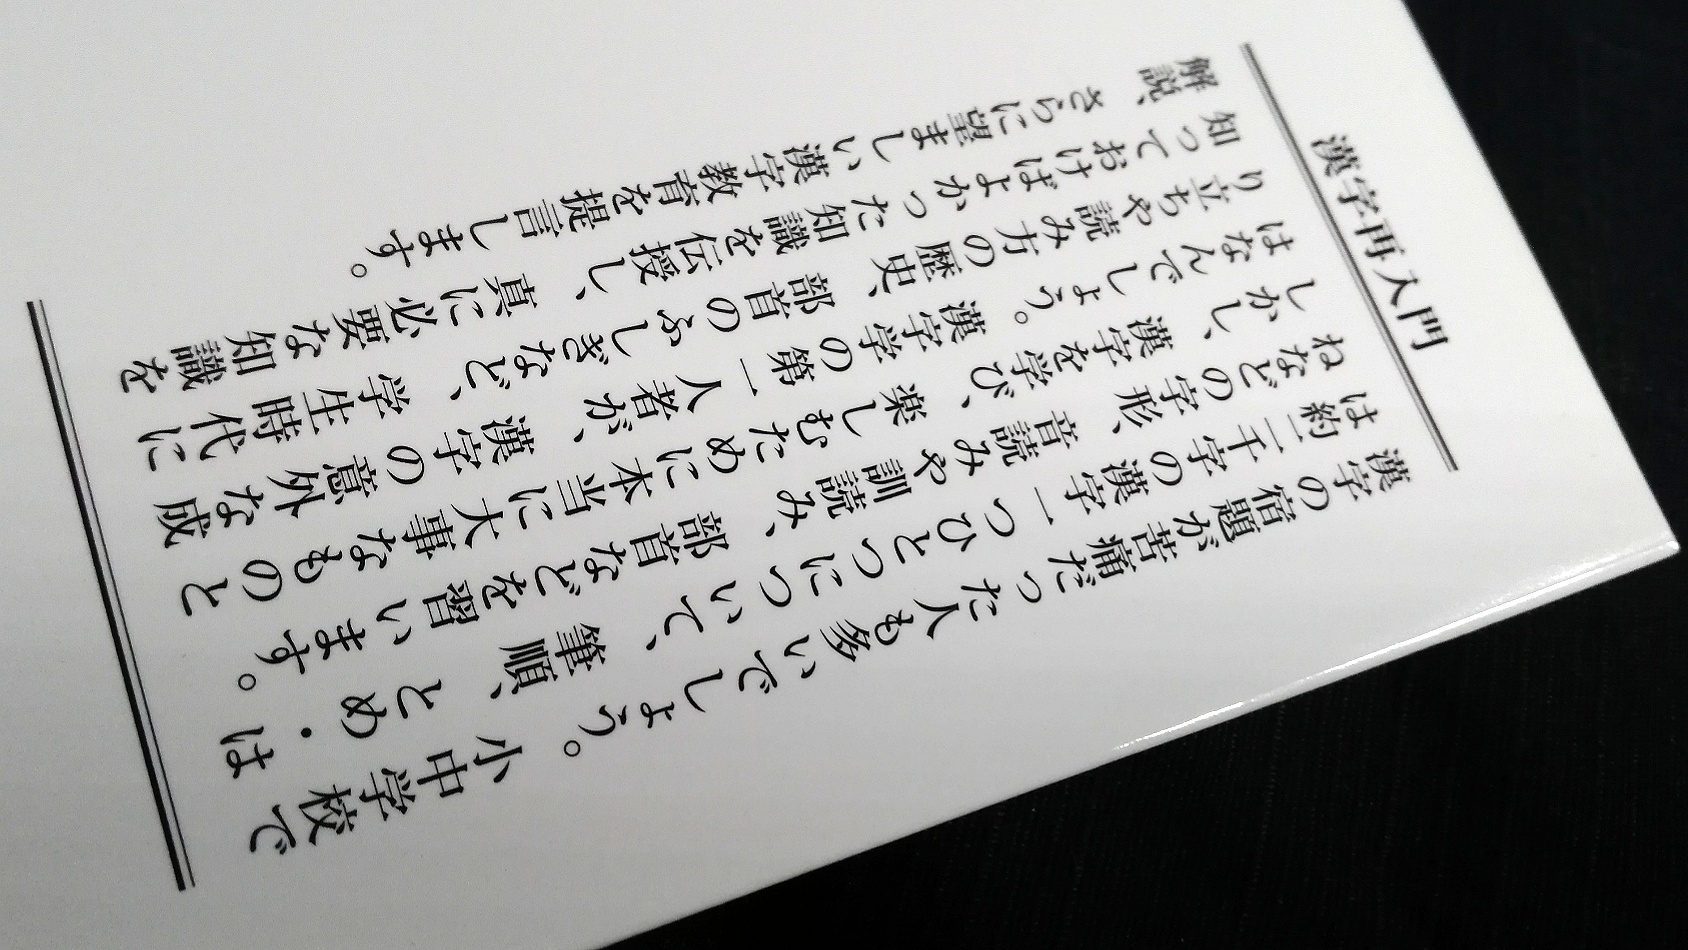 漢字再入門
漢字の宿題が苦痛だった人も多いでしょう。小中学校で
は約二千字の漢字一つひとつについて、筆順、とめ・は
ねなどの字形、音読みや訓読み、部首などを習います。
しかし、漢字を学び、楽しむために本当に大事なものと
はなんでしょう。漢字学の第一人者が、漢字の意外な成
り立ちや読み方の歴史、部首のふしぎなど、学生時代に
知っておけばよかった知識を伝授し、真に必要な知識を
解説、さらに望ましい漢字教育を提言します。